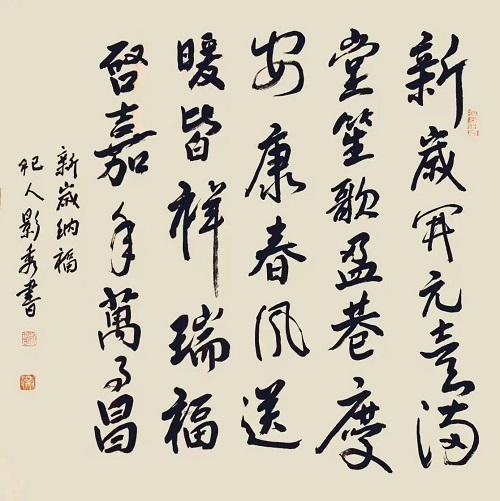 新歲開元喜满
堂笙歌盈巷慶
安康春风送
暖皆祥瑞福
啓嘉年萬事昌
新歲纳福
杞人影秀書